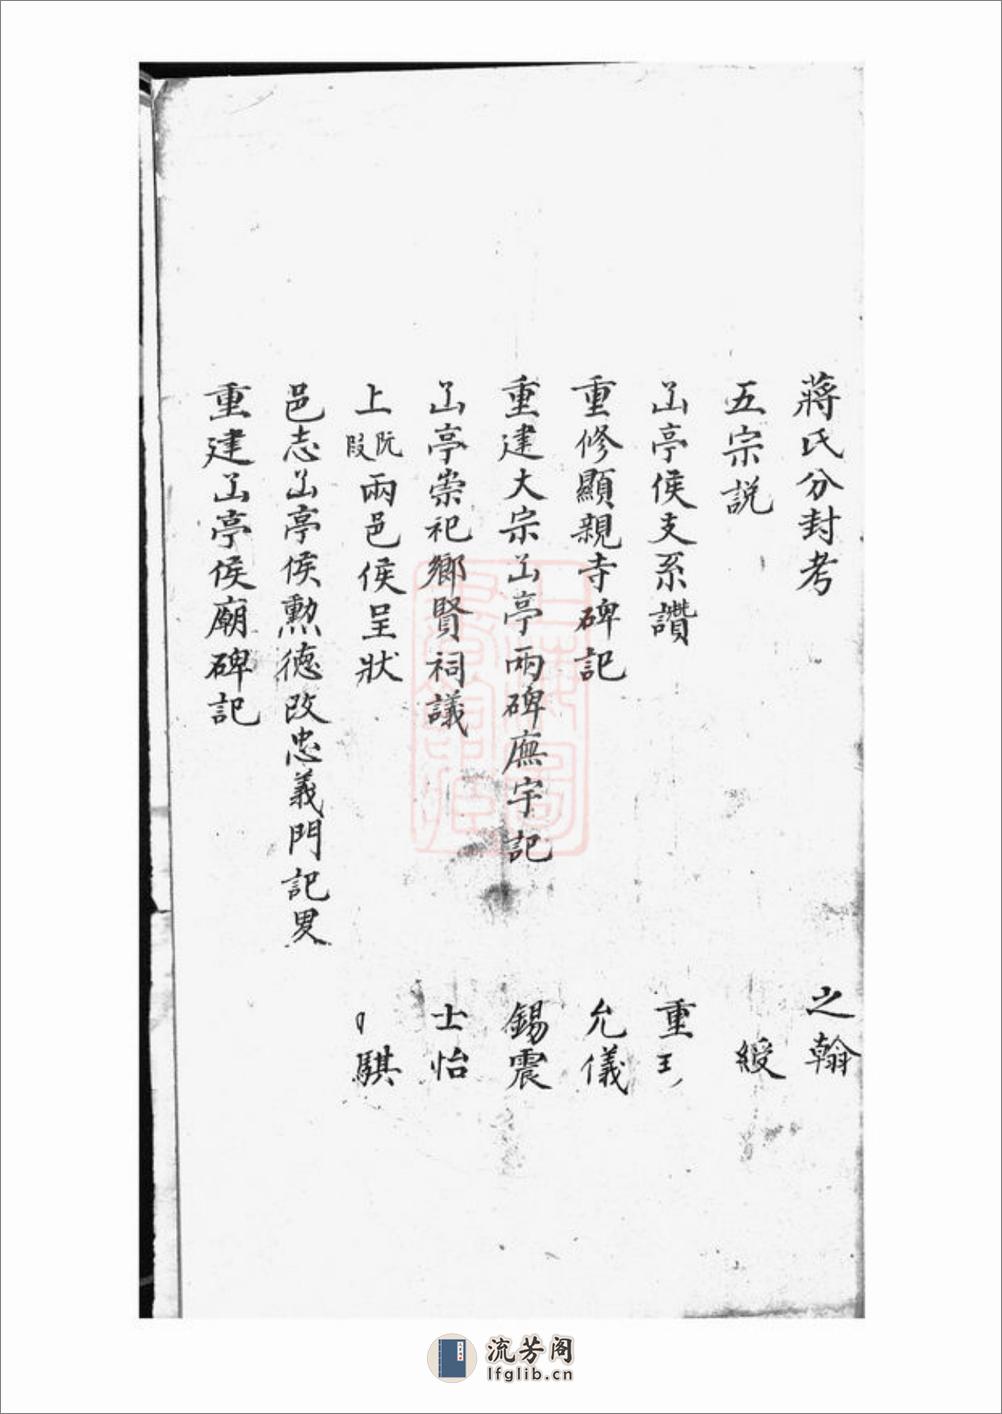 蔣氏分封考 之翰
五宗説 綬
亭侯支系讚 重
重修顯親寺碑記 允儀
重建大宗亭兩碑廡宇記 錫震
亭崇祀鄉賢祠議 士怡
上阮段兩邑侯呈狀 騏
邑志亭侯勲德改忠義門記畧
重建亭侯廟碑記
流芳阁
lfglib.cn